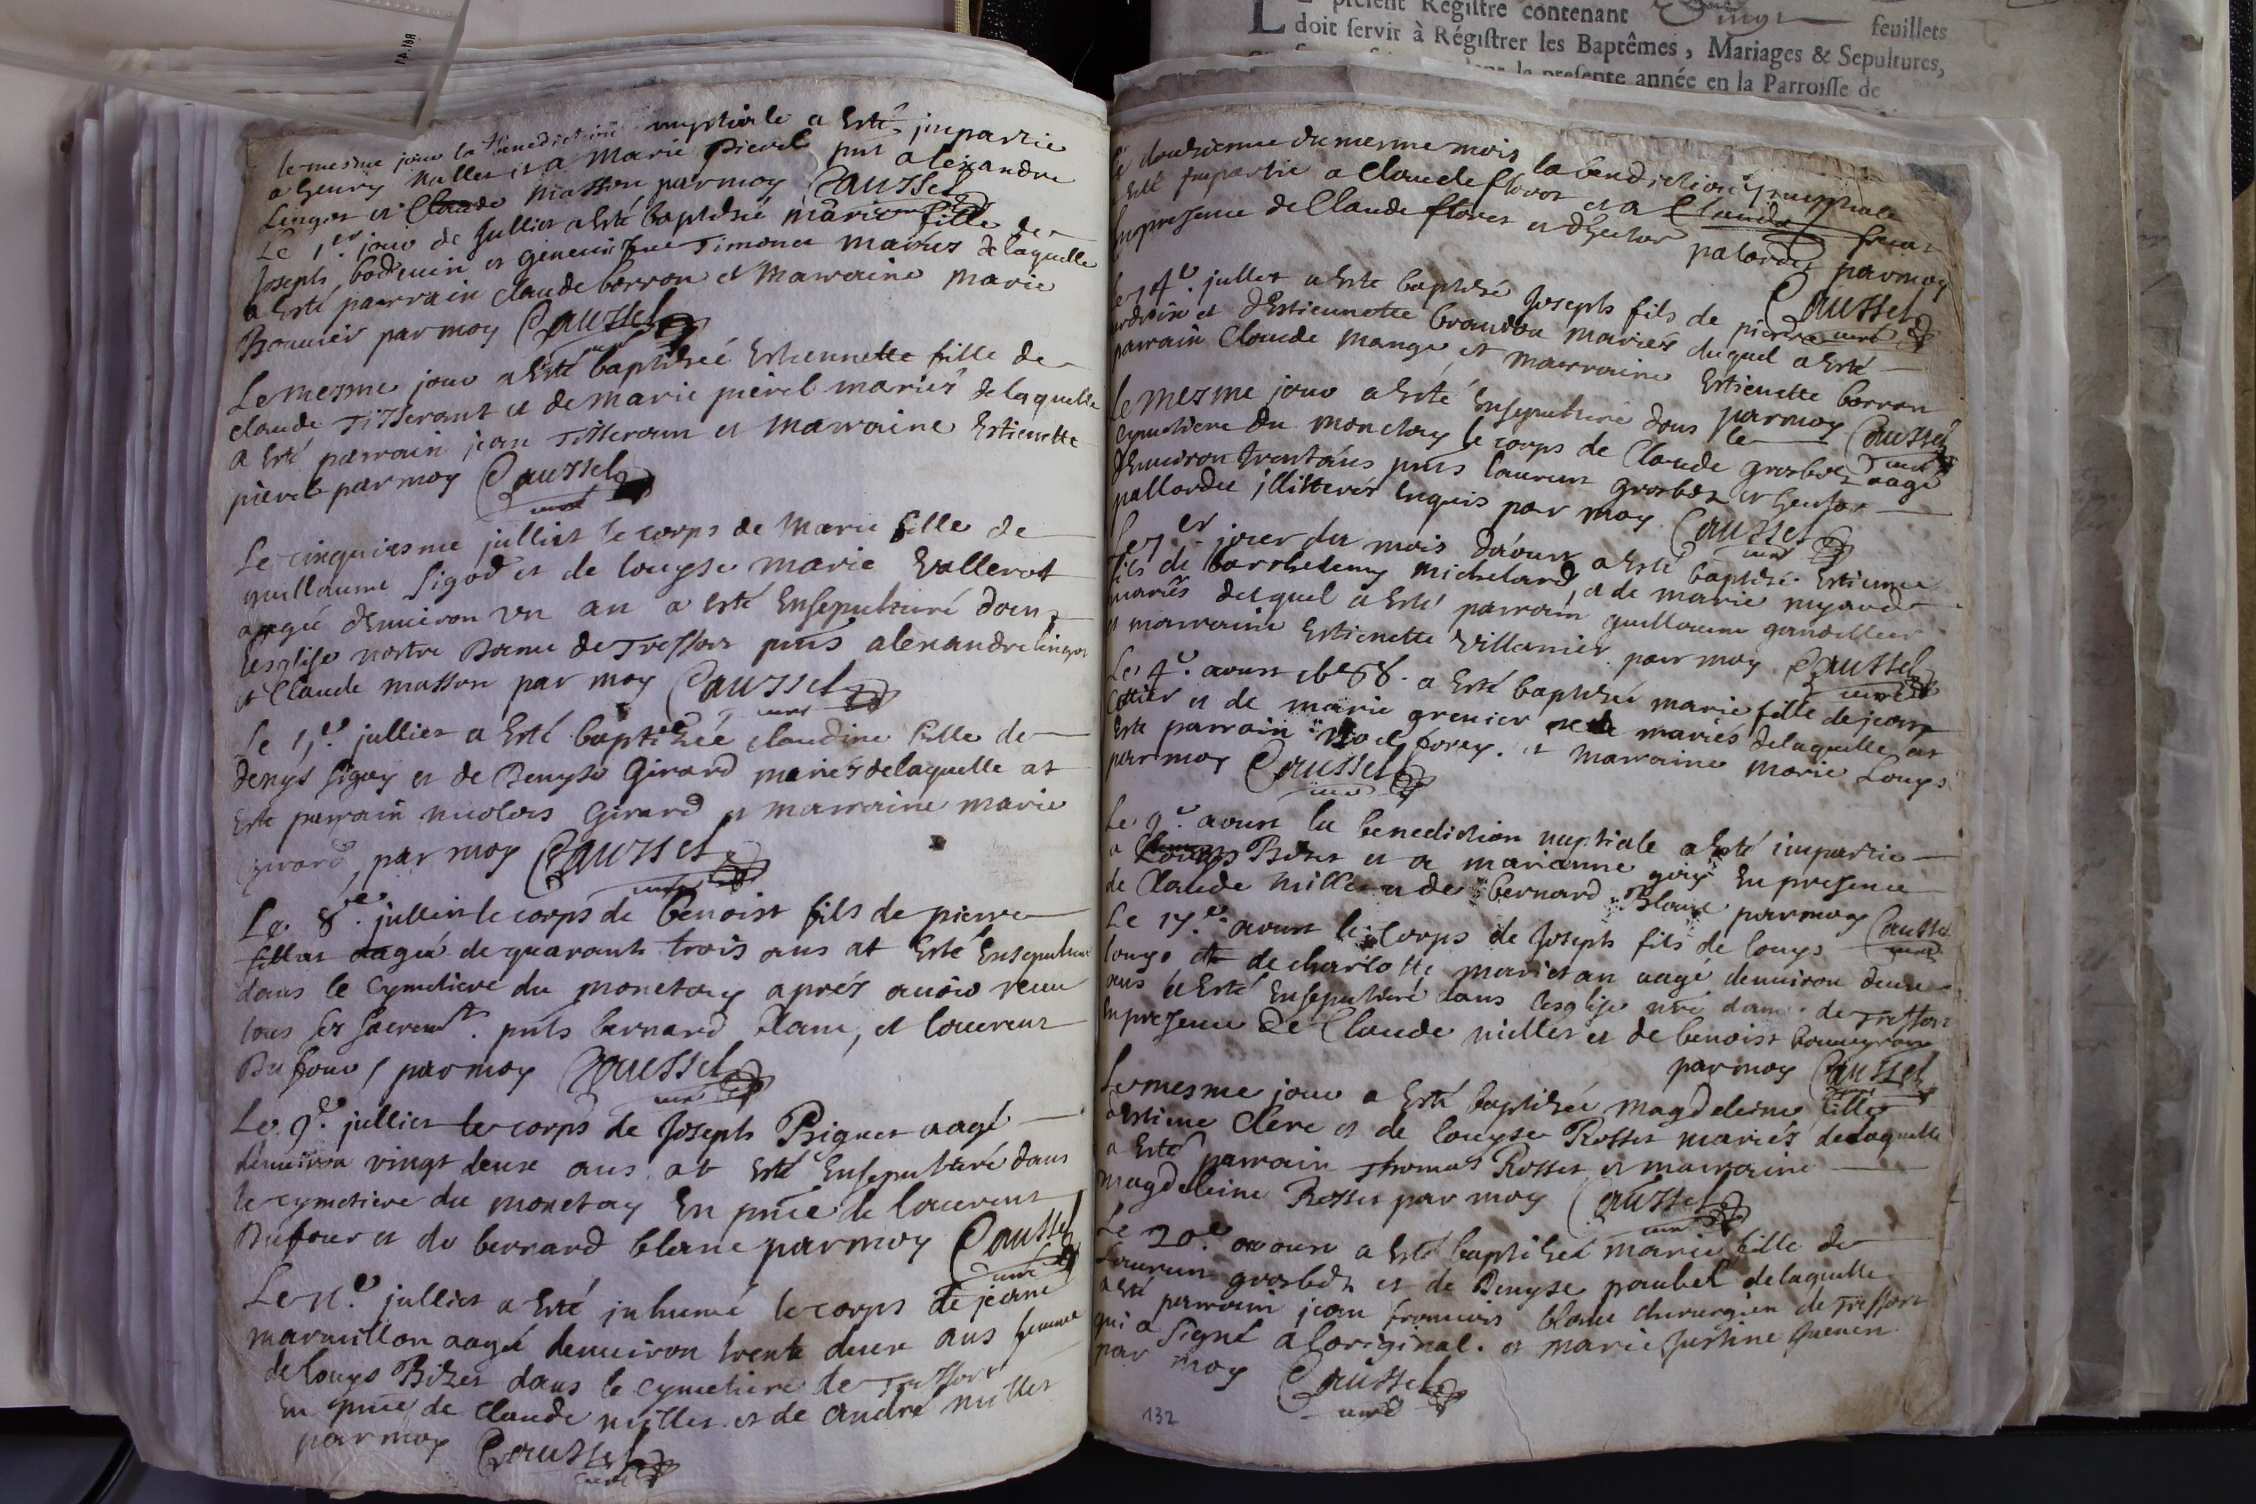 le mesme jour la benediction nuptiale a esté impartie
a henry Nallet et a Marie Pierel pnt alexandre
Linger et Claude Masson par moy Caussel
Le 1er jour de Julliet a esté baptisée marie fille de
Joseph et genevieve Timonet mariés de laquelle
a esté parrain claude borron et marraine marie
Bonnier par moy Caussel
curé
Le mesme jour a esté baptisée Estiennette fille de
claude Tisserant et de marie pierel mariés de laquelle
a esté parrain jean Tisseran et marraine Estienette
pierel par moy Caussel
curé
Le cinquiesme julliet le corps de Marie fille de
guillaume Sigod et de louyse marie Vallerot
aagée d'environ un an a esté ensepulturé dans
lesglise nostre Dame de Treffort pnts alexandre linger
et Claude masson par moy Caussel
curé
Le julliet a esté baptisée claudine fille de
denys et de Denyse Girard mariés de laquelle at
esté parrain nicolas Girard et marraine marie
Girard par moy Caussel
curé
Le 8.e julliet le corps de benoist fils de pierre
fillat aagé de quarante trois ans at esté ensepulturé
dans le cymetiere du monetay aprés avoir receu
tous ses sacremts. pnts bernard blanc, et laurent
Dufour par moy Caussel
curé
Le 9.e julliet le corps de Joseph Briguet aagé
denviron vingt deux ans at esté ensepulturé dans
le cymetiere du monetay en pnce de laurent
Dufour et de bernard blanc par moy Caussel
curé
Le 11.e julliet a esté inhumé le corps de jeane
marmillon aagé denviron trente deux ans femme
de louys Bizet dans le cymetiere de Treffort
en pnce de claude millet et de andré millet
par moy Caussel
curé
L present Regiſtre contenant Vingt feuillets
doit ſervir à Régiſtrer les Baptêmes, Mariages & Sepultures,
la preſente année en la Parroiſſe de
Le douzieme du mesme mois la benediction nuptiale
a esté impartie a Claude floret et a Clauda
en presence de Claude floret et d'hector palordet par moy
Caussel
curé
Le 14.e jullet a esté baptisé Joseph fils de pierre
et d'Estiennette mariés duquel a esté
parrain Claude mange et marraine Estienette borron
par moy Caussel
curé
Le mesme jour a esté ensepulturé dans le
cymetiere du monetay le corps de Claude grosbost aagé
d'environ trent'ans pnts laurent grosbost et hector
pallordet illiterés enquis par moy Caussel
curé
Le 1er jour du mois d'aoust a esté baptisé Estienne
fils de barthelemy michelard, et de marie
mariés duquel a esté parrain guillaume
et marraine Estienette Villanier par moy Caussel
curé
Le 4.e aoust a esté baptisée marie fille de jean
Cottier et de marie grenier mariés de laquelle at
esté parrain forey. et marraine marie Louys
par moy Caussel
curé
Le 9.e aoust la benediction nuptiale a esté impartie
a Louys Bizet et a marianne en presence
de Claude millet et de bernard Blanc par moy Caussel
curé
Le 17.e aoust le corps de Joseph fils de louys
louys et de charlotte aagé denviron deux
ans a esté ensepulturé dans lesglise nre dame de Treffort
en presence de Claude millet et de benoist
par moy Caussel
Le mesme jour a esté baptisée magdeleine fille
a Clerc et de louyse Rosset mariés de laquelle
a esté parrain Thomas Rosset et marraine
magdeleine Rosset par moy Caussel
curé
Le 20.e aoust a esté baptisée marie fille de
Laurent grosbost et de Denyse paubel de laquelle
a esté parrain jean francois blanc chirurgien de Treffort
qui a signé a loriginal. et marie Justine
par moy Caussel
curé
132